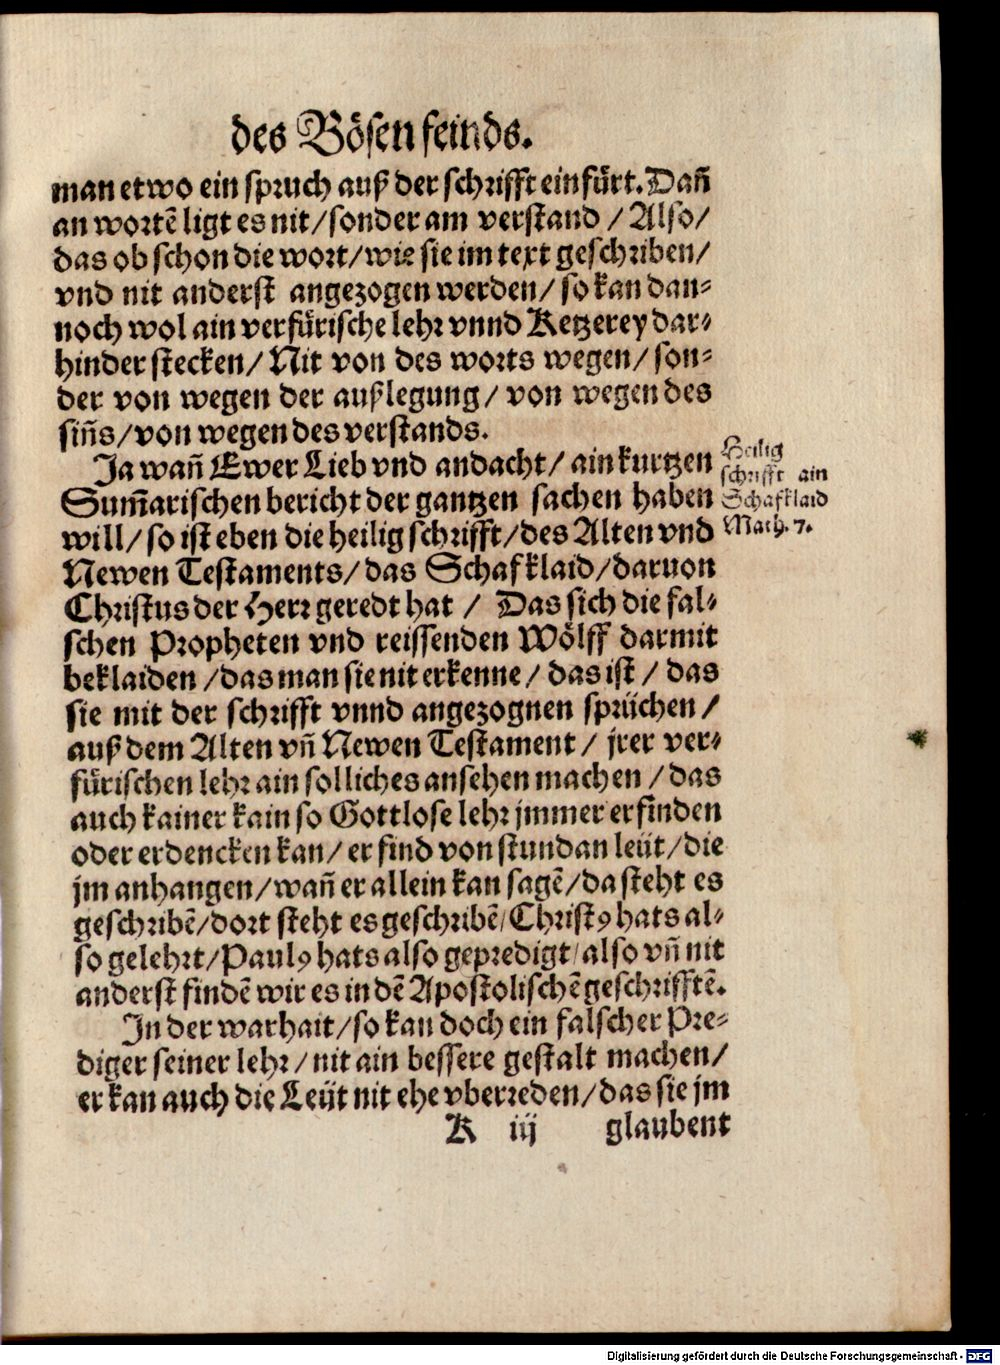 des Bösen feinds.
man etwo ein spruch auß der schrifft einfürt. Dañ
an wortē ligt es nit/sonder am verstand / Also/
das ob schon die wort/wie sie im text geschriben/
vnd nit anderst angezogen werden/ so kan dan-
noch wol ain verfürische lehr vnnd Ketzerey dar-
hinder stecken/ Nit von des worts wegen/ son-
der von wegen der außlegung/ von wegen des
siñs/von wegen des verstands.
Ja wañ Ewer Lieb vnd andacht/ ain kurtzen
Sum̃arischen bericht der gantzen sachen haben
will/ so ist eben die heilig schrifft/des Alten vnd
Newen Testaments/das Schafklaid/daruon
Christus der Herr geredt hat / Das sich die fal-
schen Propheten vnd reissenden Wölff darmit
beklaiden /das man sie nit erkenne/ das ist / das
sie mit der schrifft vnnd angezognen sprüchen /
auß dem Alten vñ Newen Testament / jrer ver-
fürischen lehr ain solliches ansehen machen /das
auch kainer kain so Gottlose lehr jmmer erfinden
oder erdencken kan/ er find von stundan leüt/die
jm anhangen/wañ er allein kan sagē/da steht es
geschribē/dort steht es geschribē/Christꝯ hats al-
so gelehrt/Paulꝯ hats also geprediget/also vñ nit
anderst findē wir es in dē Apostolischē geschrifftē.
In der warhait/so kan doch ein falscher Pre-
diger seiner lehr/nit ain bessere gestalt machen/
er kan auch die Leüt nit ehe vberreden/das sie jm
K iij glaubent
Heilig
schrifft ain
Schafklaid
Math. 7.
Digitalisierung gefördert durch die Deutsche Forschungsgemeinschaft - DFG